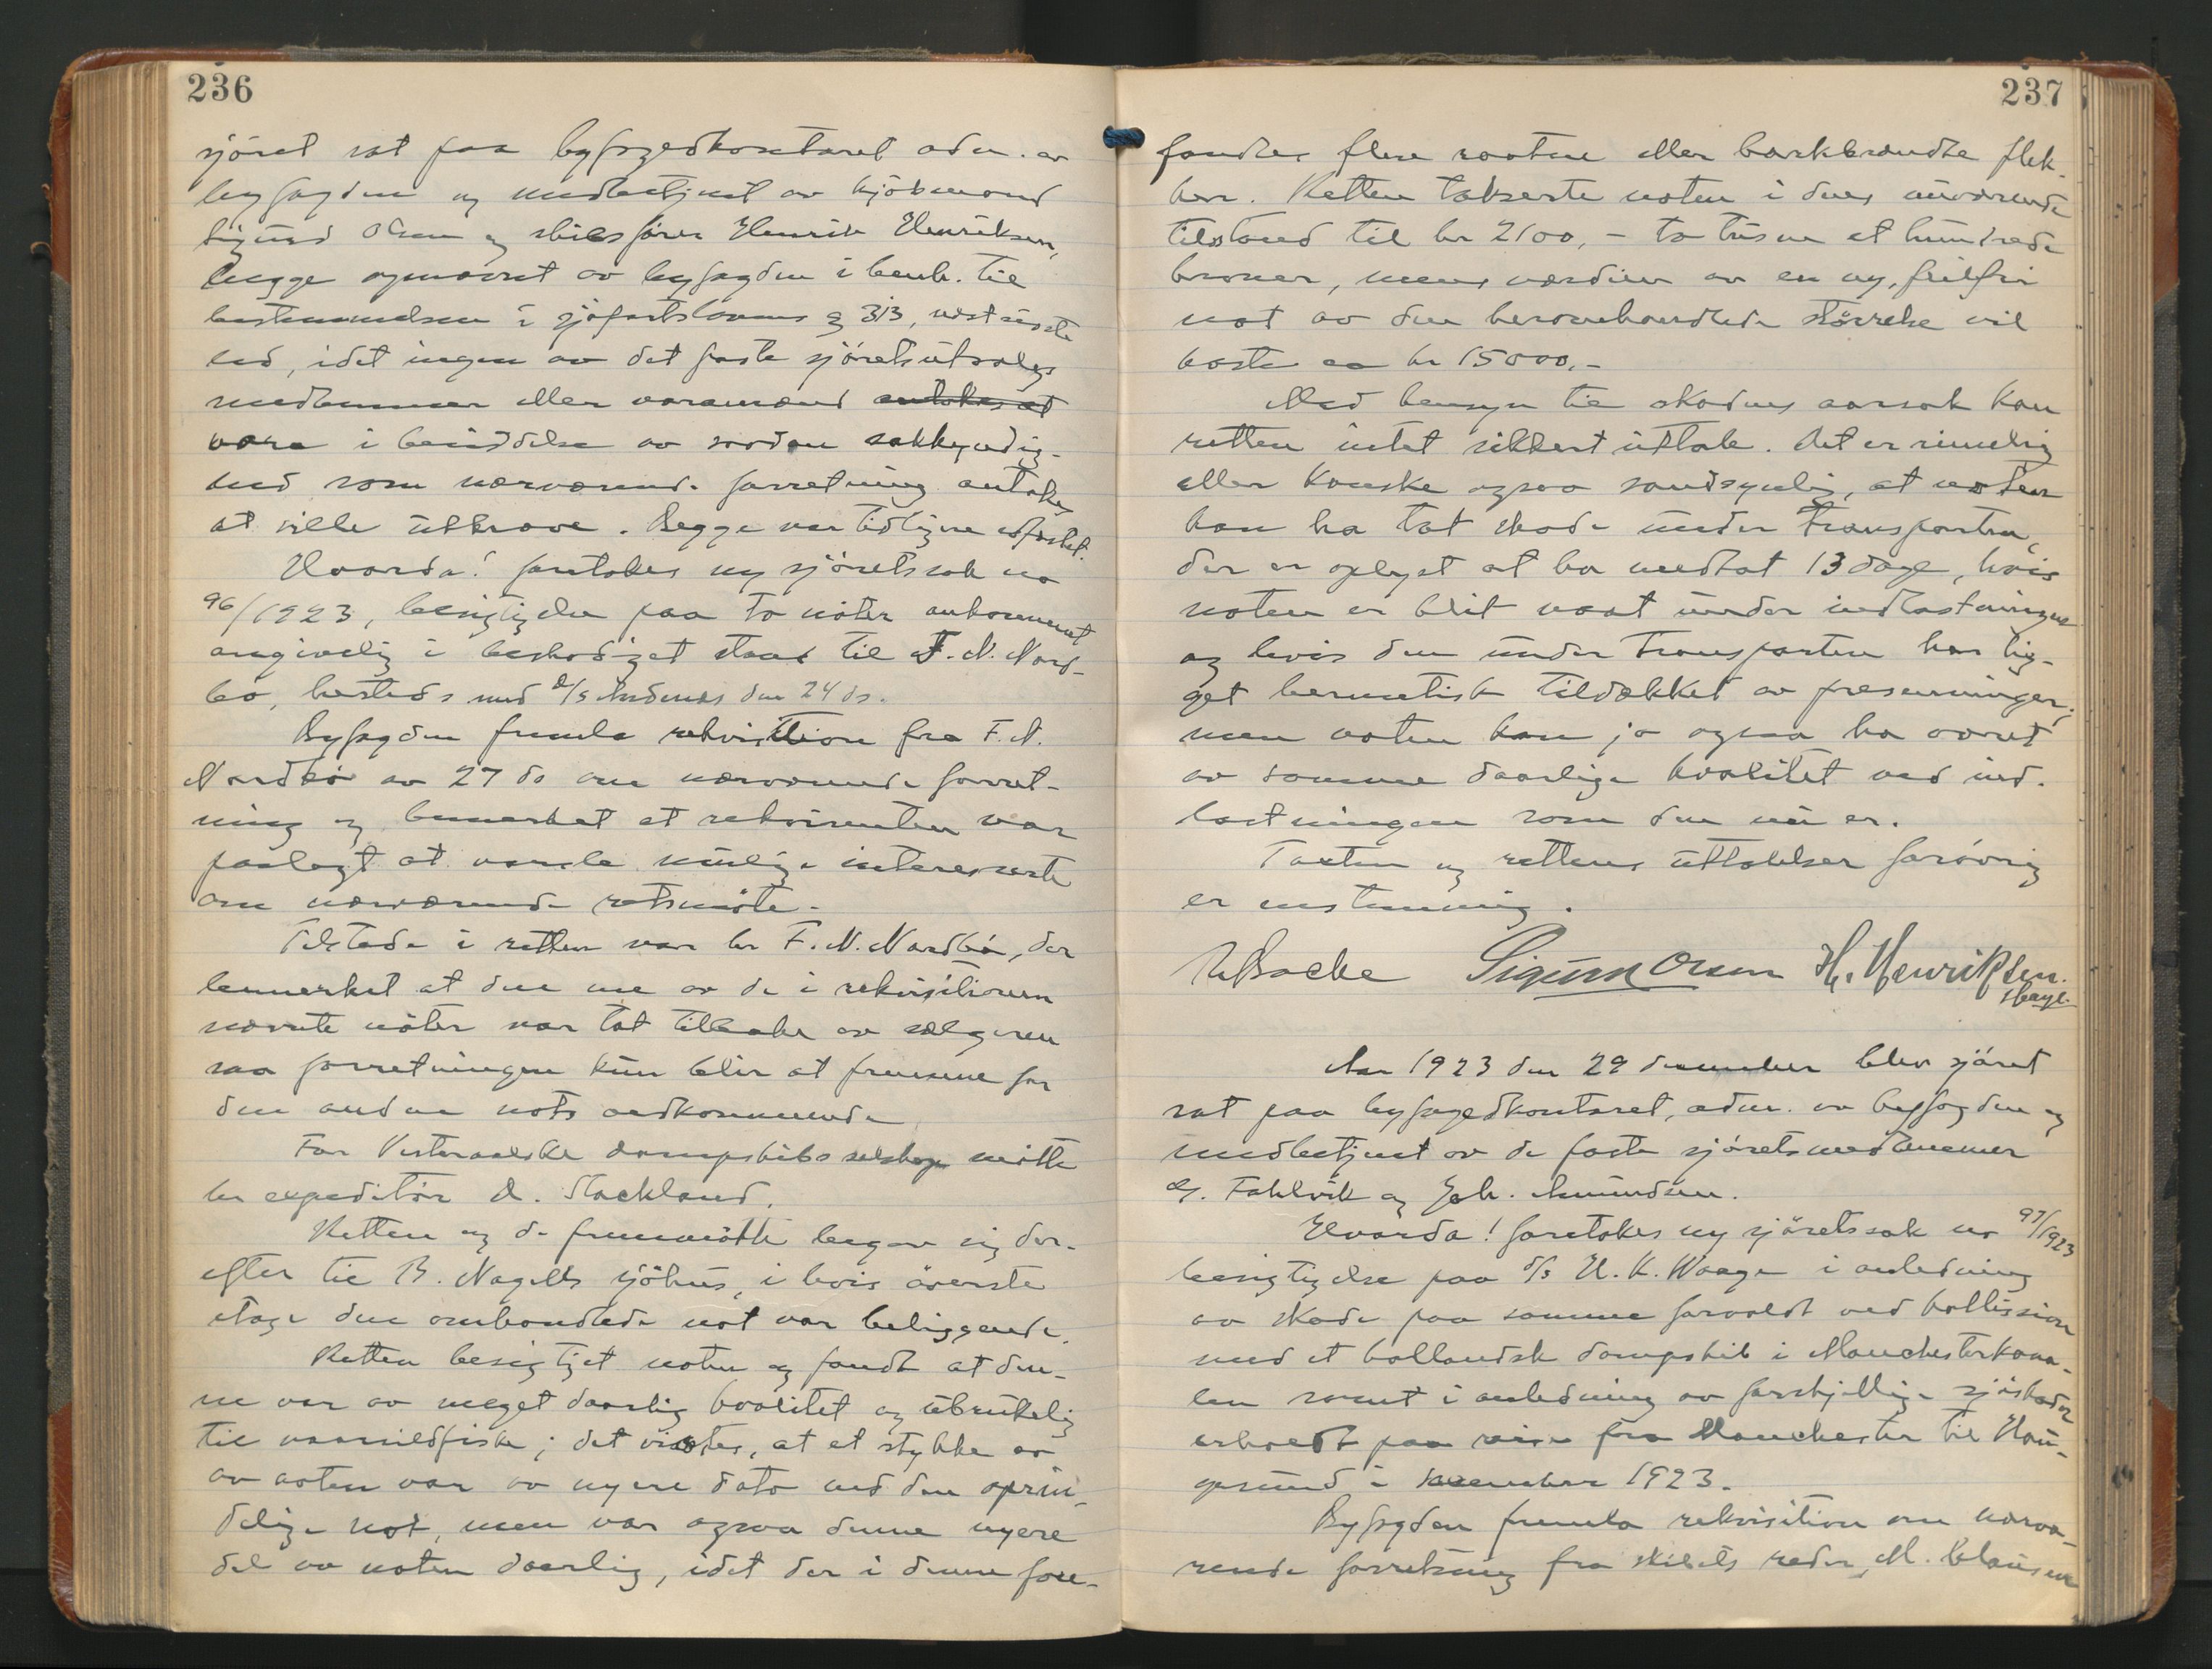 236
sjöret sat paa byfogedkontoret adm. av
byfogden og medbetjent av kjöbmand
Sigurd Olsen og skibsförer Henrik Henriksen,
begge opnævnt av byfogden i henh. til
bestemmelsen i sjöfartslovens § 313, næstsiste
led, idet ingen av det faste sjöretsutvalgs
medlemmer eller varamænd antokes at
være i besiddelse av saadan sakkyndig-
hed som nærværende forretning antokes
at ville utkræve. Begge var tidligere edfæstet.
Hvorda! foretokes ny sjöretssak no
96/1923, besigtigelse paa to nöter ankommet
angivelig i beskadiget stand til F. N. Nord-
bö, hersteds med D/S Andenes den 24 ds.
Byfogden fremla rekvisition fra F. N.
Nordbö av 27 ds om nærværende forret-
ning og bemerket at rekvirenten var
paalagt at varsle mulige interesserte
om nærværende retsmöte.
Tilstede i retten var hr F. N. Nordbö, der
bemerket at den ene av de i rekvisitionen
nævnte nöter var tat tilbake av sælgeren
saa forretningen kun blir at fremme for
den anden nots vedkommende
For Vesteraalske dampskibsselskap mötte
hr expeditör A. Stockland.
Retten og de fremmötte begav sig der-
efter til B. Nagells sjöhus, i hvis överste
etage den omhandlede not var beliggende.
Retten besigtiget noten og fandt at den-
ne var av meget daarlig kvalitet og ubrukelig
til vaarsildfiske; det vistes, at et stykke av
av noten var av nyere dato end den oprin-
delige not, men var ogsaa denne nyere
del av noten daarlig, idet der i denne fore-
237
fandtes flere raatne eller barkbrændte flek-
ker. Retten takserte noten i dens nuværende
tilstand til kr 2100,- to tusen et hundrede
kroner, mens værdien av en ny, feilfri
not av den heromhandlede störrelse vil
koste ca kr 15000.-
Med hensyn til skadens aarsak kan
retten intet sikkert uttale. Det er rimelig
eller kanske ogsaa sandsynlig, at noten
kan ha tat skade under transporten,
der er oplyst at ha medtat 13 dage, hvis
noten er blit vaat under indlastningen
og hvis den under transporten har lig-
get hermetisk tildækket av presenninger;
men noten kan jo ogsaa ha været
av samme daarlige kvalitet ved ind-
lastningen som den nu er.
Taxten og rettens uttalelser forövrig
er enstemmig.
Sigurd Olsen H. Henriksen.
Aar 1923 den 29 december blev sjöret
sat paa byfogedkontoret, adm. av byfogden og
medbetjent av de faste sjöretsmedlemmer
G. Fahlvik og Joh. Amundsen.
Hvorda! foretokes ny sjöretssak no 97/1923
besigtigelse paa S/S H. K. Waage i anledning
av skade paa samme forvoldt ved kollission
med et hollandsk dampskib i Manchesterkana-
len samt i anledning av forskjellige sjöskader
erholdt paa reise fra Manchester til Hau-
gesund i november 1923.
Byfogden fremla rekvisition om nærvæ-
rende forretning fra skibets reder, M. Clausen